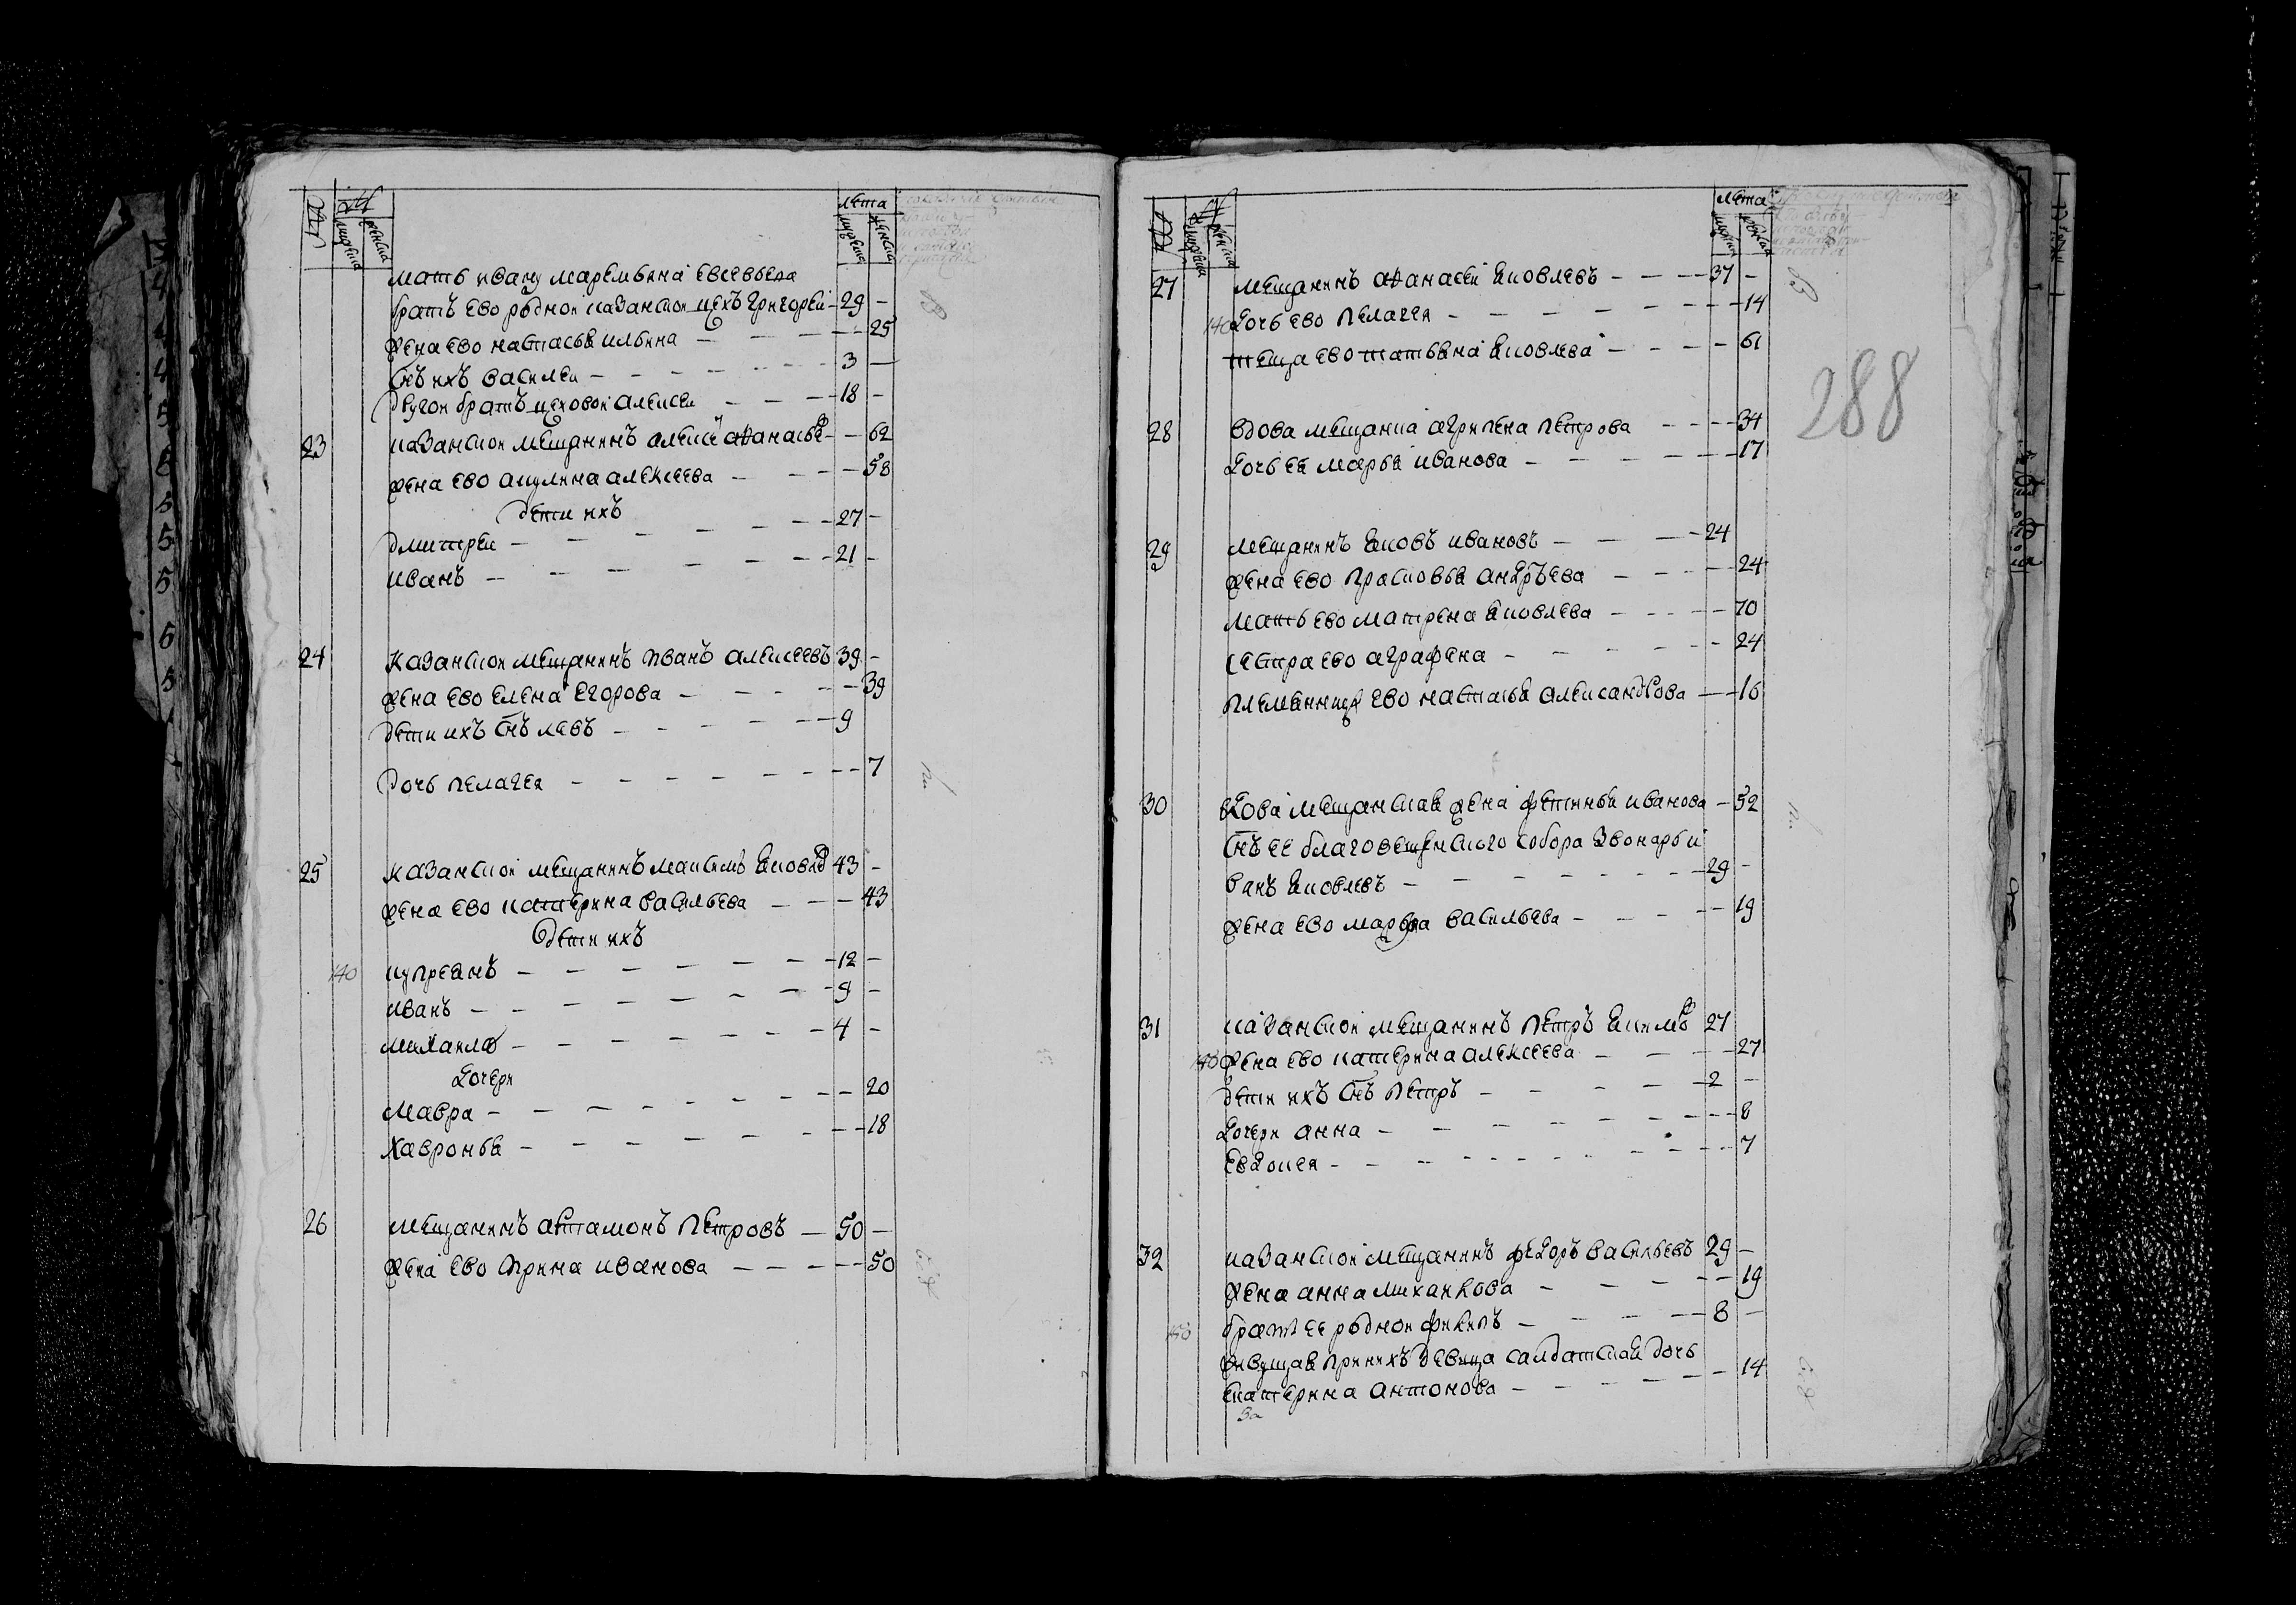 лѣта
мать ивану марѳмьяна евсевьева
братъ ево родной казанской цехъ григорей 29
жена ево настасья ильина 25
снъ ихъ василеи 3
другои братъ цеховои алексеи 18
23 казанскои мещанинъ алексѣй аѳанасье 62
жена ево акулина алексеева 58
дети ихъ
дмитреи 27
иванъ 21
24 казанскои мещанинъ иванъ алексеевъ 39
жена ево елена егорова 39
дети ихъ снъ левъ 9
дочь пелагея 7
25 казанскои мещанинъ максимъ яковлев 43
жена ево катерина васильева 43
дети ихъ
140 купреянъ 12
иванъ 9
михаила 4
дочери
мавра 20
хавронья 18
26 мещанинъ артамонъ петровъ 50
жена ево ирина иванова 50
лѣта
27 мещанинъ аѳанасеи яковлевъ 37
140 дочь ево пелагея 14
теща ево татьяна яковлева 61
288
28 вдова мещанка агрипена петрова 34
дочь ея марья иванова 17
29 мещанинъ яковъ ивановъ 24
жена ево прасковья андрѣева 24
мать ево матрена яковлева 70
сестра ево аграфена 24
племянница ево настасья александрова 16
30 вдова мещанская жена фетинья иванова 52
снъ ее благовещенского собора звонарь и
ванъ яковлевъ 29
жена ево марфа васильева 19
31 казанскои мещанинъ петръ якимов 27
140 жена ево катерина алексеева 27
дети ихъ снъ петръ 2
дочери анна 8
евдокея 7
32 казанскои мещанинъ федоръ васильевъ 29
жена анна миханкова 19
братъ ее роднои филипъ 8
живущая при нихъ девица салдатская дочь
екатерина антонова 14